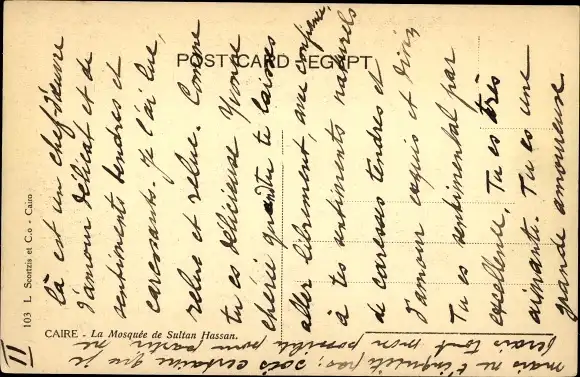 POST CARD - EGYPT
là est un chef-d'œuvre
d'amour délicat et de
sentiments tendres et
caressants. Je l'ai lue,
relue et relue. Comme
tu es délicieuse Yvonne
chérie quand tu te laisses
aller librement, avec confiance,
à tes sentiments naturels
de caresses tendres et
d'amour exquis et
Tu es sentimental par
excellence, Tu es très
aimante. Tu es une
grande amoureuse
mais ne t'inquiète pas; sois certaine que je
ferais tout mon possible pour partir
II
CAIRE - La Mosquée de Sultan Hassan.
103 L. Scortzis et C.o - Cairo